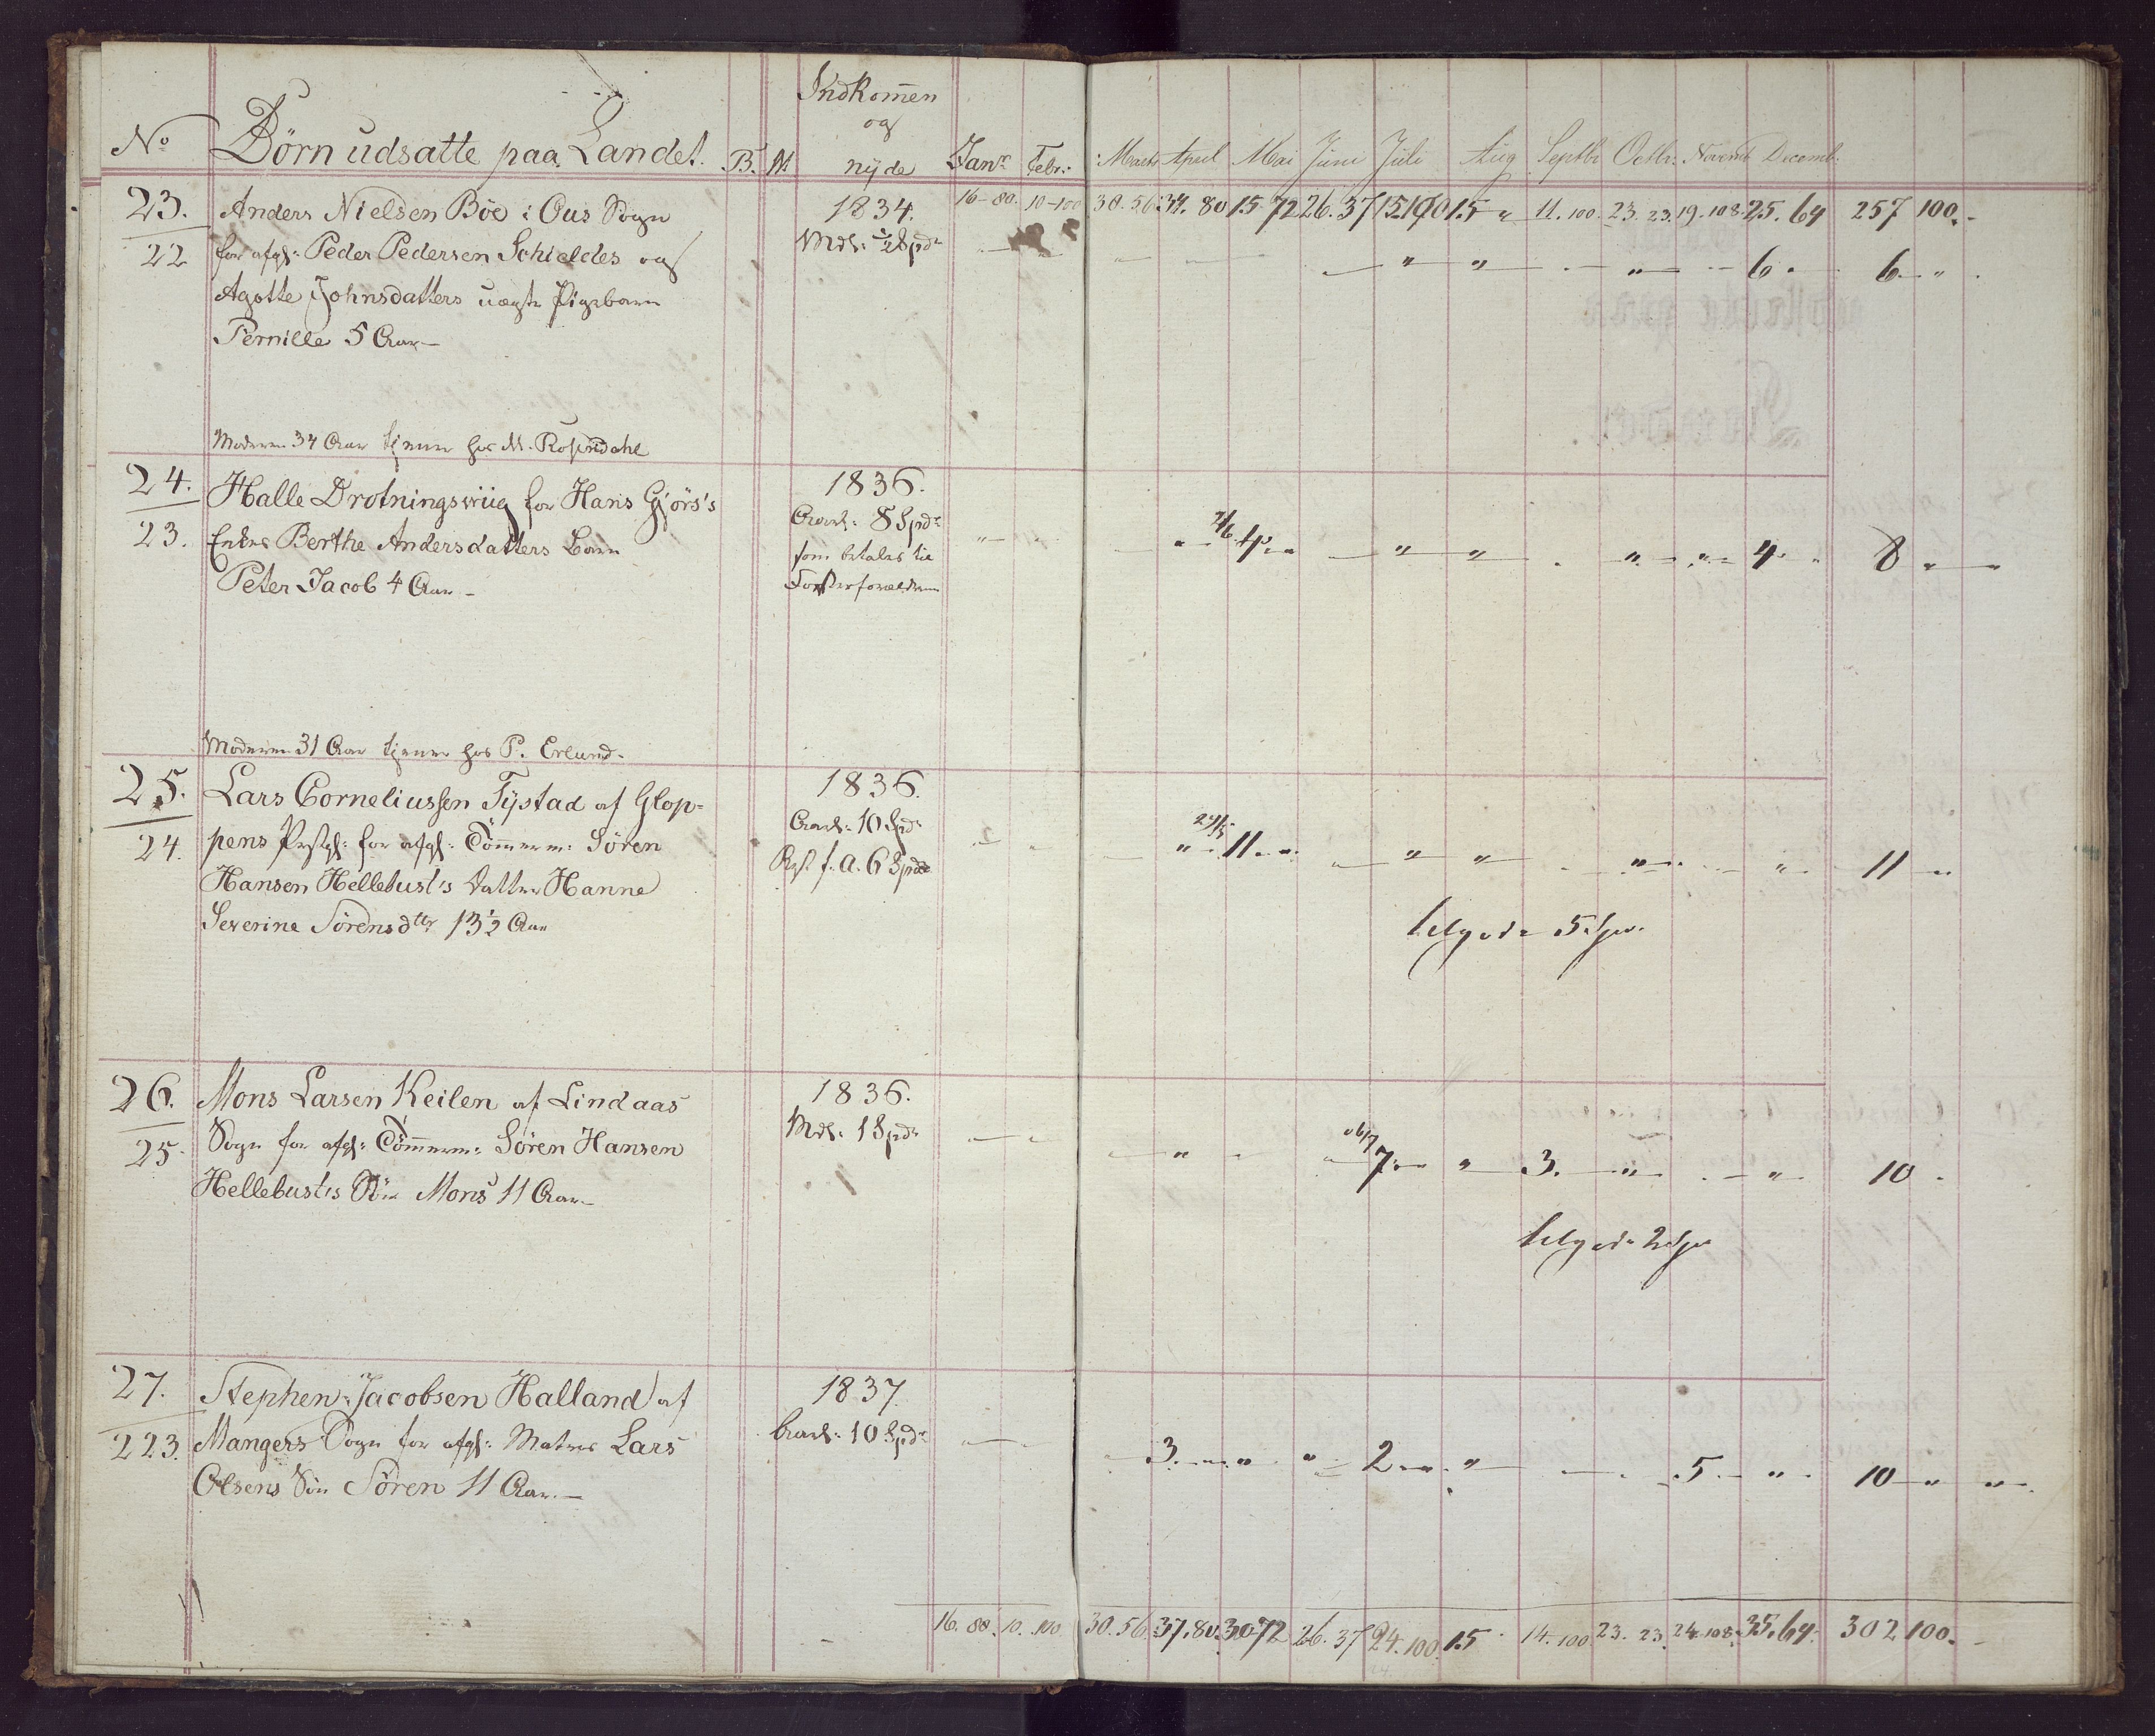 No Börn udsatte paa Landet. B. M Indkomen og nyde Janr. Febr: Marts April Mai Juni Juli Aug Septbr Octbr: Novemb Decemb.
16-80. 10-100 30.56. 34.80 15 72 26.37 15 100 15 " 11.100. 23.23. 19.108. 25.64 257 100.-
23. Anders Nielsen Böe i Ous Sogn
22 for afgl: Peder Pedersen Schieldes og
Agotte Johnsdatters uægte Pigebarn
Pernille 5 Aar-
Moderen 34 Aar tjener hos M. Rosendahl
1834.
Mdl: ½ Spdr
6. 6. "
24. Halle Drotningswiig for Hans Gjörs's
23. Enkes Berthe Andersdatters Barn
Peter Jacob 4 Aar -
Moderen 31 Aar tjener hos P. Erlund.
1836.
Aarl: 8 Spdr
som betales til
Fosterforældrene
4. " 4. 8 "
25. Lars Corneliussen Tystad af Glop=
24. pens Prstgl: for afgl: Tömmerm: Sören
Hansen Hellebust's Datter Hanne
Severine Sörensdtr 13½ Aar
1836.
Aarl: 10 Spdr
Rest f. A. 6 Spd
11. " 11 "
tilgode 5 Spd.
26. Mons Larsen Keilen af Lindaas
25. Sogn for afgl: Tömmerm: Sören Hansen
Hellebust's Sön Mons 11 Aar-
1836.
Mdl: 1 Spdr
7. " 3. " 10.
tilgode 2 Spd
27. Stephen Jacobsen Halland af
223. Mangers Sogn for afgl: Matros Lars
Olsens Sön Sören 11 Aar.-
1837.
Aarl: 10 Spdr
3. " 2. " 5. " 10 "
16.80. 10.100. 30.56. 37.80. 30 72 26.37 24.100. 15 14.100 23.23. 24.108. 35.64. 302 100.-